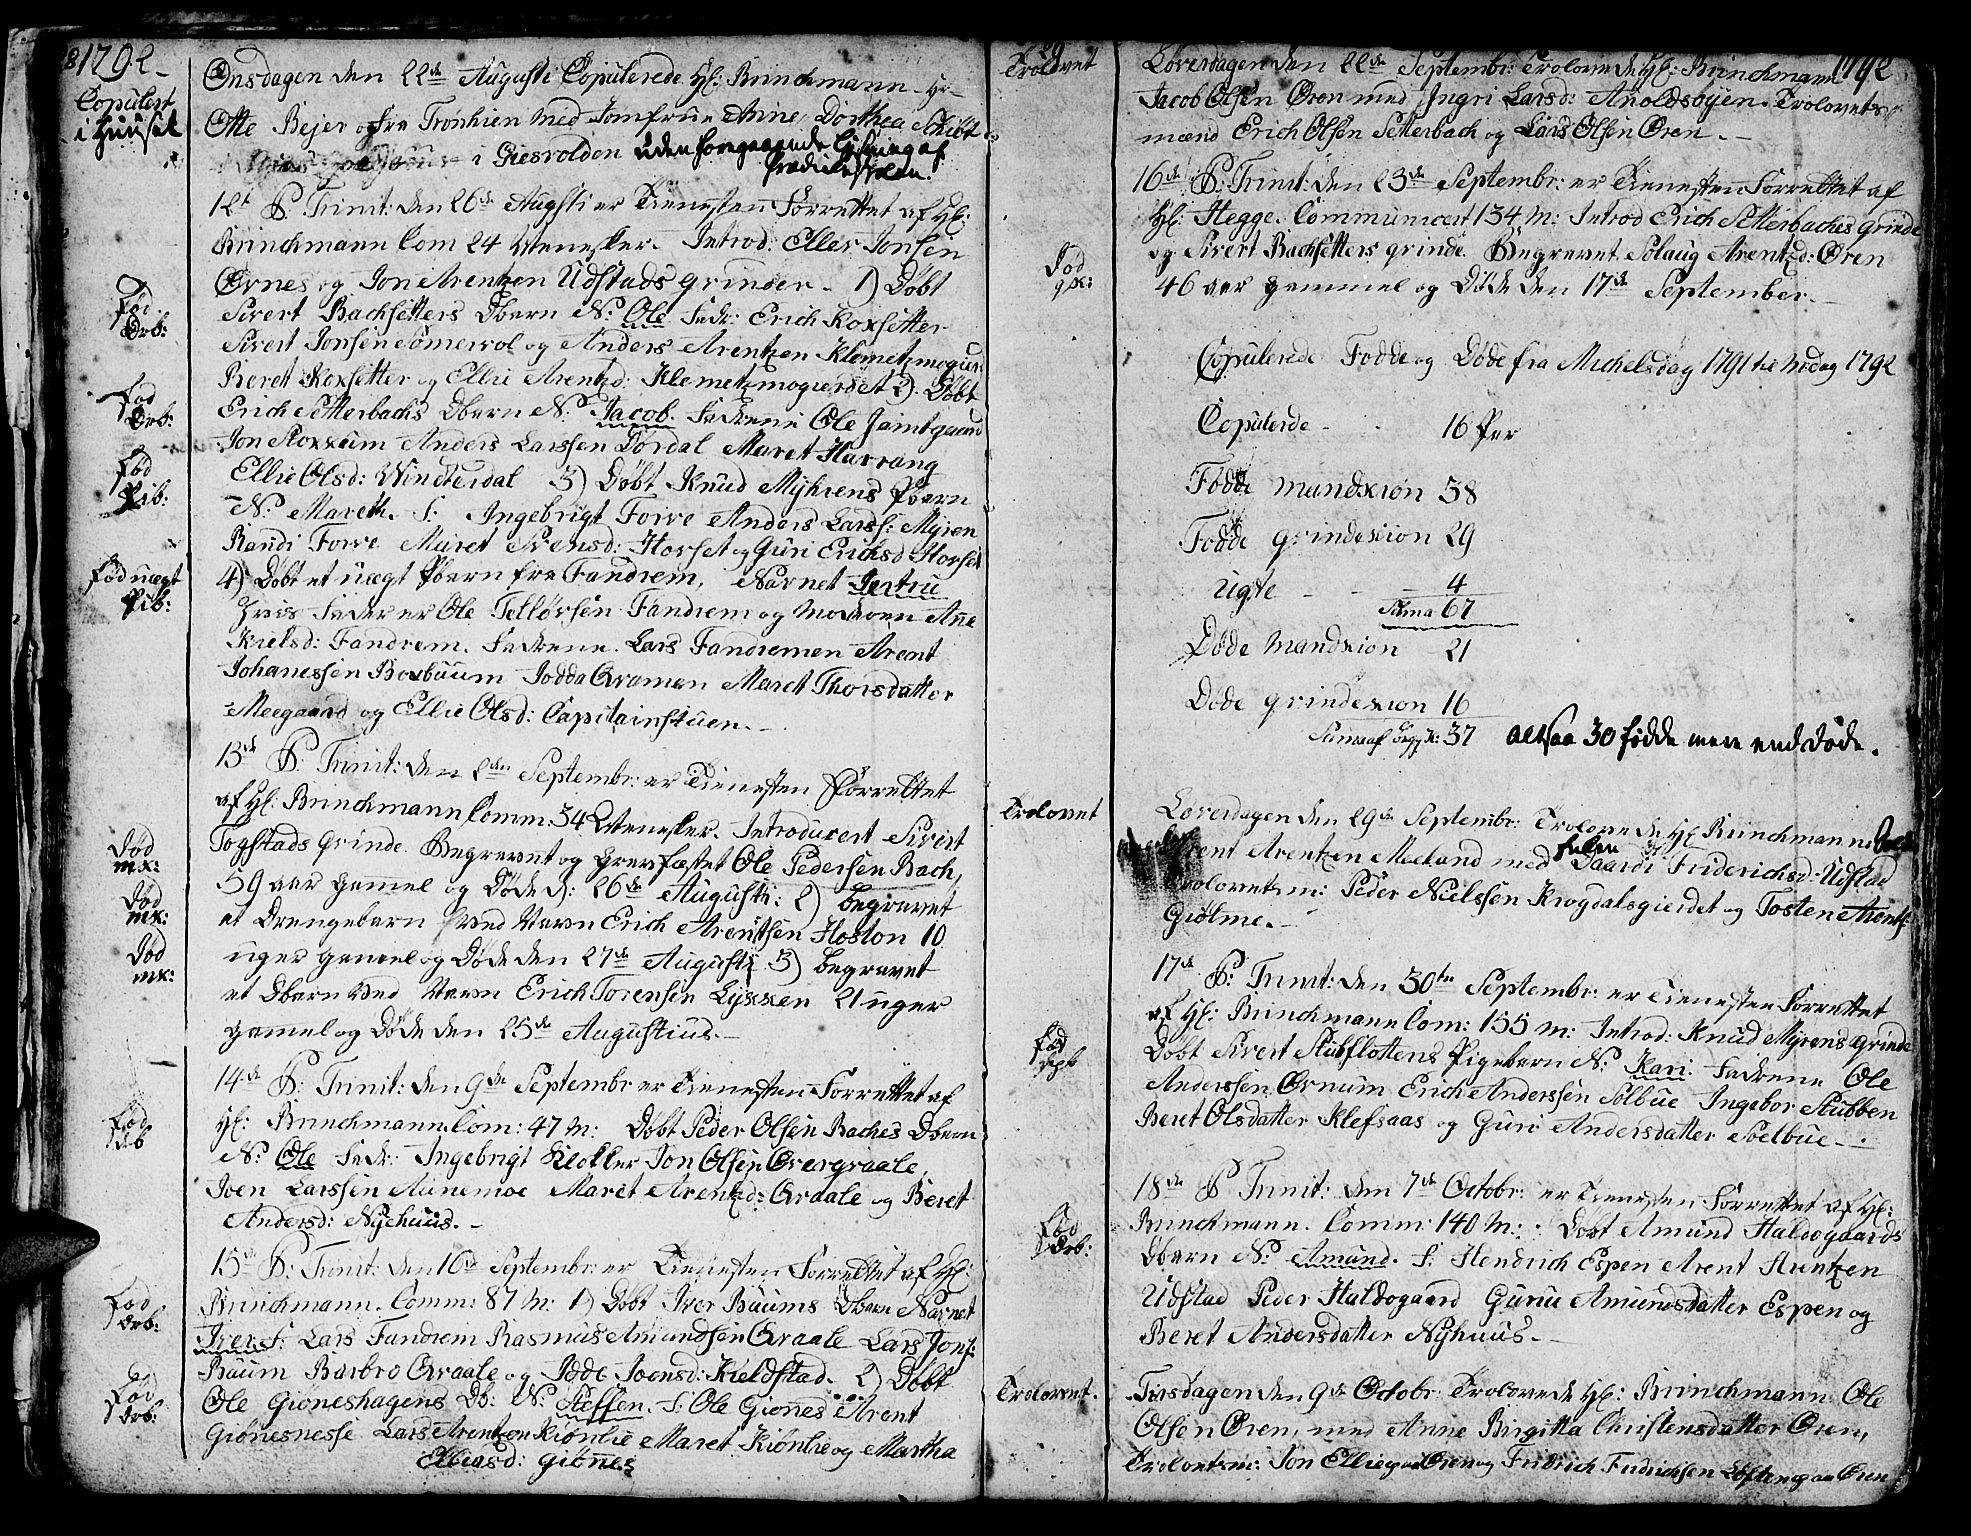 1792.
Copulert
i Huuset
Onsdagen den 22de Augusti Copulerede Hl: Brinchmann Hr
Otte Bejer fra Tronhiem med Jomfrue Anne Dorthea Schiøt
i Giesvolden uden foregaaende Lysning af
Prædikestolen.
12t P. Trinit: den 26de Augsti er Tienesten Forrettet af Hl:
Brinchmann Com 24 Menesker. Introd: Eller Jonsen
Ørnes og Jon Arentzen Udstads grinder. 1) Døbt
Sivert Bachsetters Dbarn N: Ole Fadr: Erich Koxsetter
Sivert Jonsen Somervol og Anders Arentzen Klemetzmogier
Beret Koxsetter og Elli Arentzd: Klemetzmogierdet 2) Døbt
Erich Setterbachs Dbarn N: Jacob. Fadrene Ole Jamtgaard
Jon Stoxkum Anders Larssen Dørdal Maret Harrang
Ellie Olsd: Windterdal 3) Døbt Knud Myhrens Pbarn
N: Mareth. F: Ingebrigt Forve Anders Larss: Myren
Randi Forve Maret Svensd: Horset og Guri Erichsd Horset
4) Døbt et uægt Pbarn fra Fandrem, Navnet Jertru
Hvis Fader er Ole Tellefsen Fandrem og Moderen Ane
Kielsd: Fandrem. Fadrene Lars Fandremen Arent
Johanessen Boxbuum Jodda Qvamen Maret Thorsdatter
Meegaard og Ellie Olsd: Capitainstuen.
13de P. Trinit: den 2den Septembr: er Tienesten Forrettet
af Hl: Brinchmann Comm: 34 Menesker. Introducert Sivert
Togstads Grinde. Begravet og Gravfæstet Ole Pedersen Bach,
59 aar gammel og Døde d: 26de Augusti: 2) begravet
et Drengebarn ved Navn Erich Arentsen Hoston 10
uger gamel og Døde den 27de Augusti 3) begravet
et Dbarn ved Navn Erich Torensen Lyxxen 21 uger
gammel og Døde den 25de Augustius.
14de P. Trinit: den 9de Septembr er Tienesten Forrettet af
Hl: Brinchmann Com: 47 M: Døbt Peder Olsen Baches Dbarn
N: Ole Fadr: Ingebrigt Kloller Jon Olsen Overgraale,
Joen Larssen Aunemoe Maret Arentzd: Qvaale og Beret
Andersd: Nyehuus.
15de P. Trinit: den 16de Septembr: er Tienesten Forrettet af Hl:
Brinchmann. Comm: 87 M: 1) Døbt Iver Buums Dbarn Navnet
Iver F: Lars Fandrem Rasmus Amundsen Qvaale Lars Jons:
Buum Barbro Qvaale og Jode Joensd: Kieldstad. 2) Døbt
Ole Giøneshagens Db: N: Steffen. F: Ole Giønnes Arent
Giønesnesse Lars Arentzen Kiønlie Maret Kiønlie og Martha
Elliasd: Giønes
Fød
Drb:
Fød
Drb:
Fød
Pib:
Fød uægt
Pib:
Død
mk:
Død
mk:
Død
mk:
Fød
db
Fød
Drb:
Fød
Drb:
29
1792
Trolovet
Løverdagen den 22de Septembr: Trolovede Hl: Brinchmann
Jacob Olsen Øren med Ingri Larsd: Anoldsøyen. Trolovets
mænd Erich Olsen Setterbach og Lars Olsen Øren.
16de P. Trinit: den 23de Septembr: er Tienesten Forrettet af
Hl: Hegge. Communicert 134 M: Introd Erich Setterbaches grinde
og Sivert Bachsetters grinde. Begravet Solaug Arentzd: Øren
46 aar gammel og Døde den 17de September.
Død
qk:
Copulerede Fødde og Døde fra Michelsdag 1791 til Midag 1792
Copulerde - - 16 Par
Fødde mandkiøn 38
Fødde grindekiøn 29
Ugte - - 4
Suma 67
Døde mandkion 21
Døde grindekion 16
Suma af begge K: 37 altsaa 30 fødde mere end døde.
Trolovet
Løverdagen den 29de Septembr: Trolovede Hl Brinchmann
Arent Arentzen Meeland med Saardi Friderichsd: Udstad
Trolovetsm: Peder Nielssen Krogdalsgierdet og Tosten Arents:
Giølme.
17de P. Trinit: den 30te Septembr: er Tienesten Forrettet
af Hl: Brinchmann Com: 155 M: Introd: Knud Myrens Grinde
Døbt Sivert Stubflottens Pigebarn N: Kari: Fadrene Ole
Anderssen Ørnum Erich Anderssen Solbue Ingebor Stubben
Beret Olsdatter Klefsaas og Guri Andersdatter Soelbue.
18de P Trinit: den 7de Octobr: er Tienesten Forrettet af Hl:
Brinchmann. Comm: 140 M: Døbt Amund Haldogaards
Dbarn N: Amund. F: Hendrich Espen Arent Arentzen
Udstad Peder Haldogaard Guru Amundsdatter Espen og
Beret Andersdatter Nyhuus.
Fød
Pgb
Fød
Drb:
Trolovet.
Tirsdagen den 9de Octobr: Trolovede Hl: Brinchmann Ole
Olsen Øren, med Anne Birgitta Christensdatter Øren,
Trolovetsm: Jon Ellieg aa Øren og Fridrich Fridrichsen Loften paa Øren